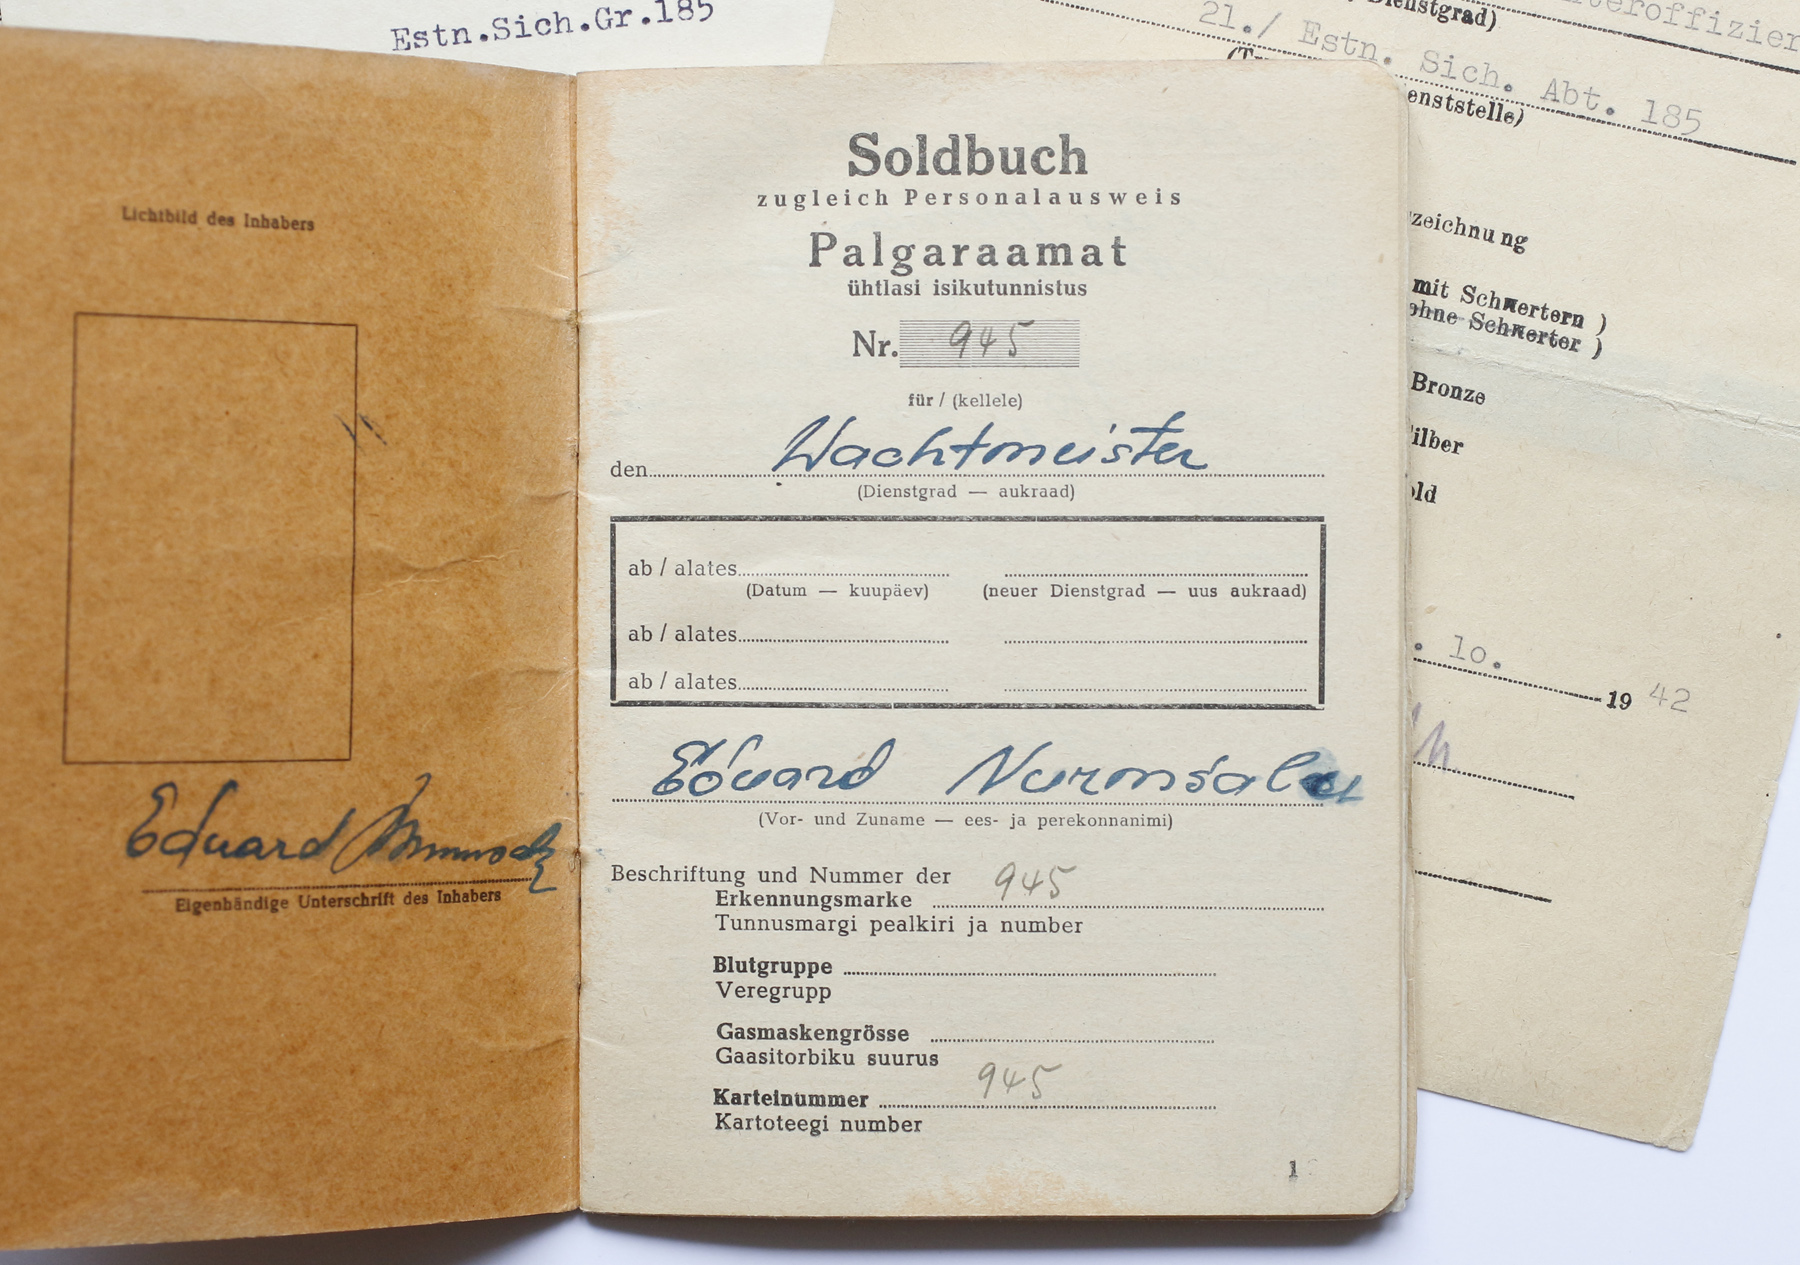 Estn.Sich.Gr.185
Dienstgrad)
21./ Estn. Sich. Abt. 185
enststelle)
zeichnung
mit Schwertern )
ohne Schwerter )
Bronze
ilber
old
. lo.
19 42
Lichtbild des Inhabers
Eduard
Eigenhändige Unterschrift des Inhabers
Soldbuch
zugleich Personalausweis
Palgaraamat
ühtlasi isikutunnistus
Nr. 945
für / (kellele)
den Wachtmeister
(Dienstgrad — aukraad)
ab / alates
(Datum — kuupäev) (neuer Dienstgrad — uus aukraad)
ab / alates
ab / alates
Eduard Nurmsalu
(Vor- und Zuname — ees- ja perekonnanimi)
Beschriftung und Nummer der
Erkennungsmarke 945
Tunnusmargi pealkiri ja number
Blutgruppe
Veregrupp
Gasmaskengrösse
Gaasitorbiku suurus
Karteinummer 945
Kartoteegi number
1